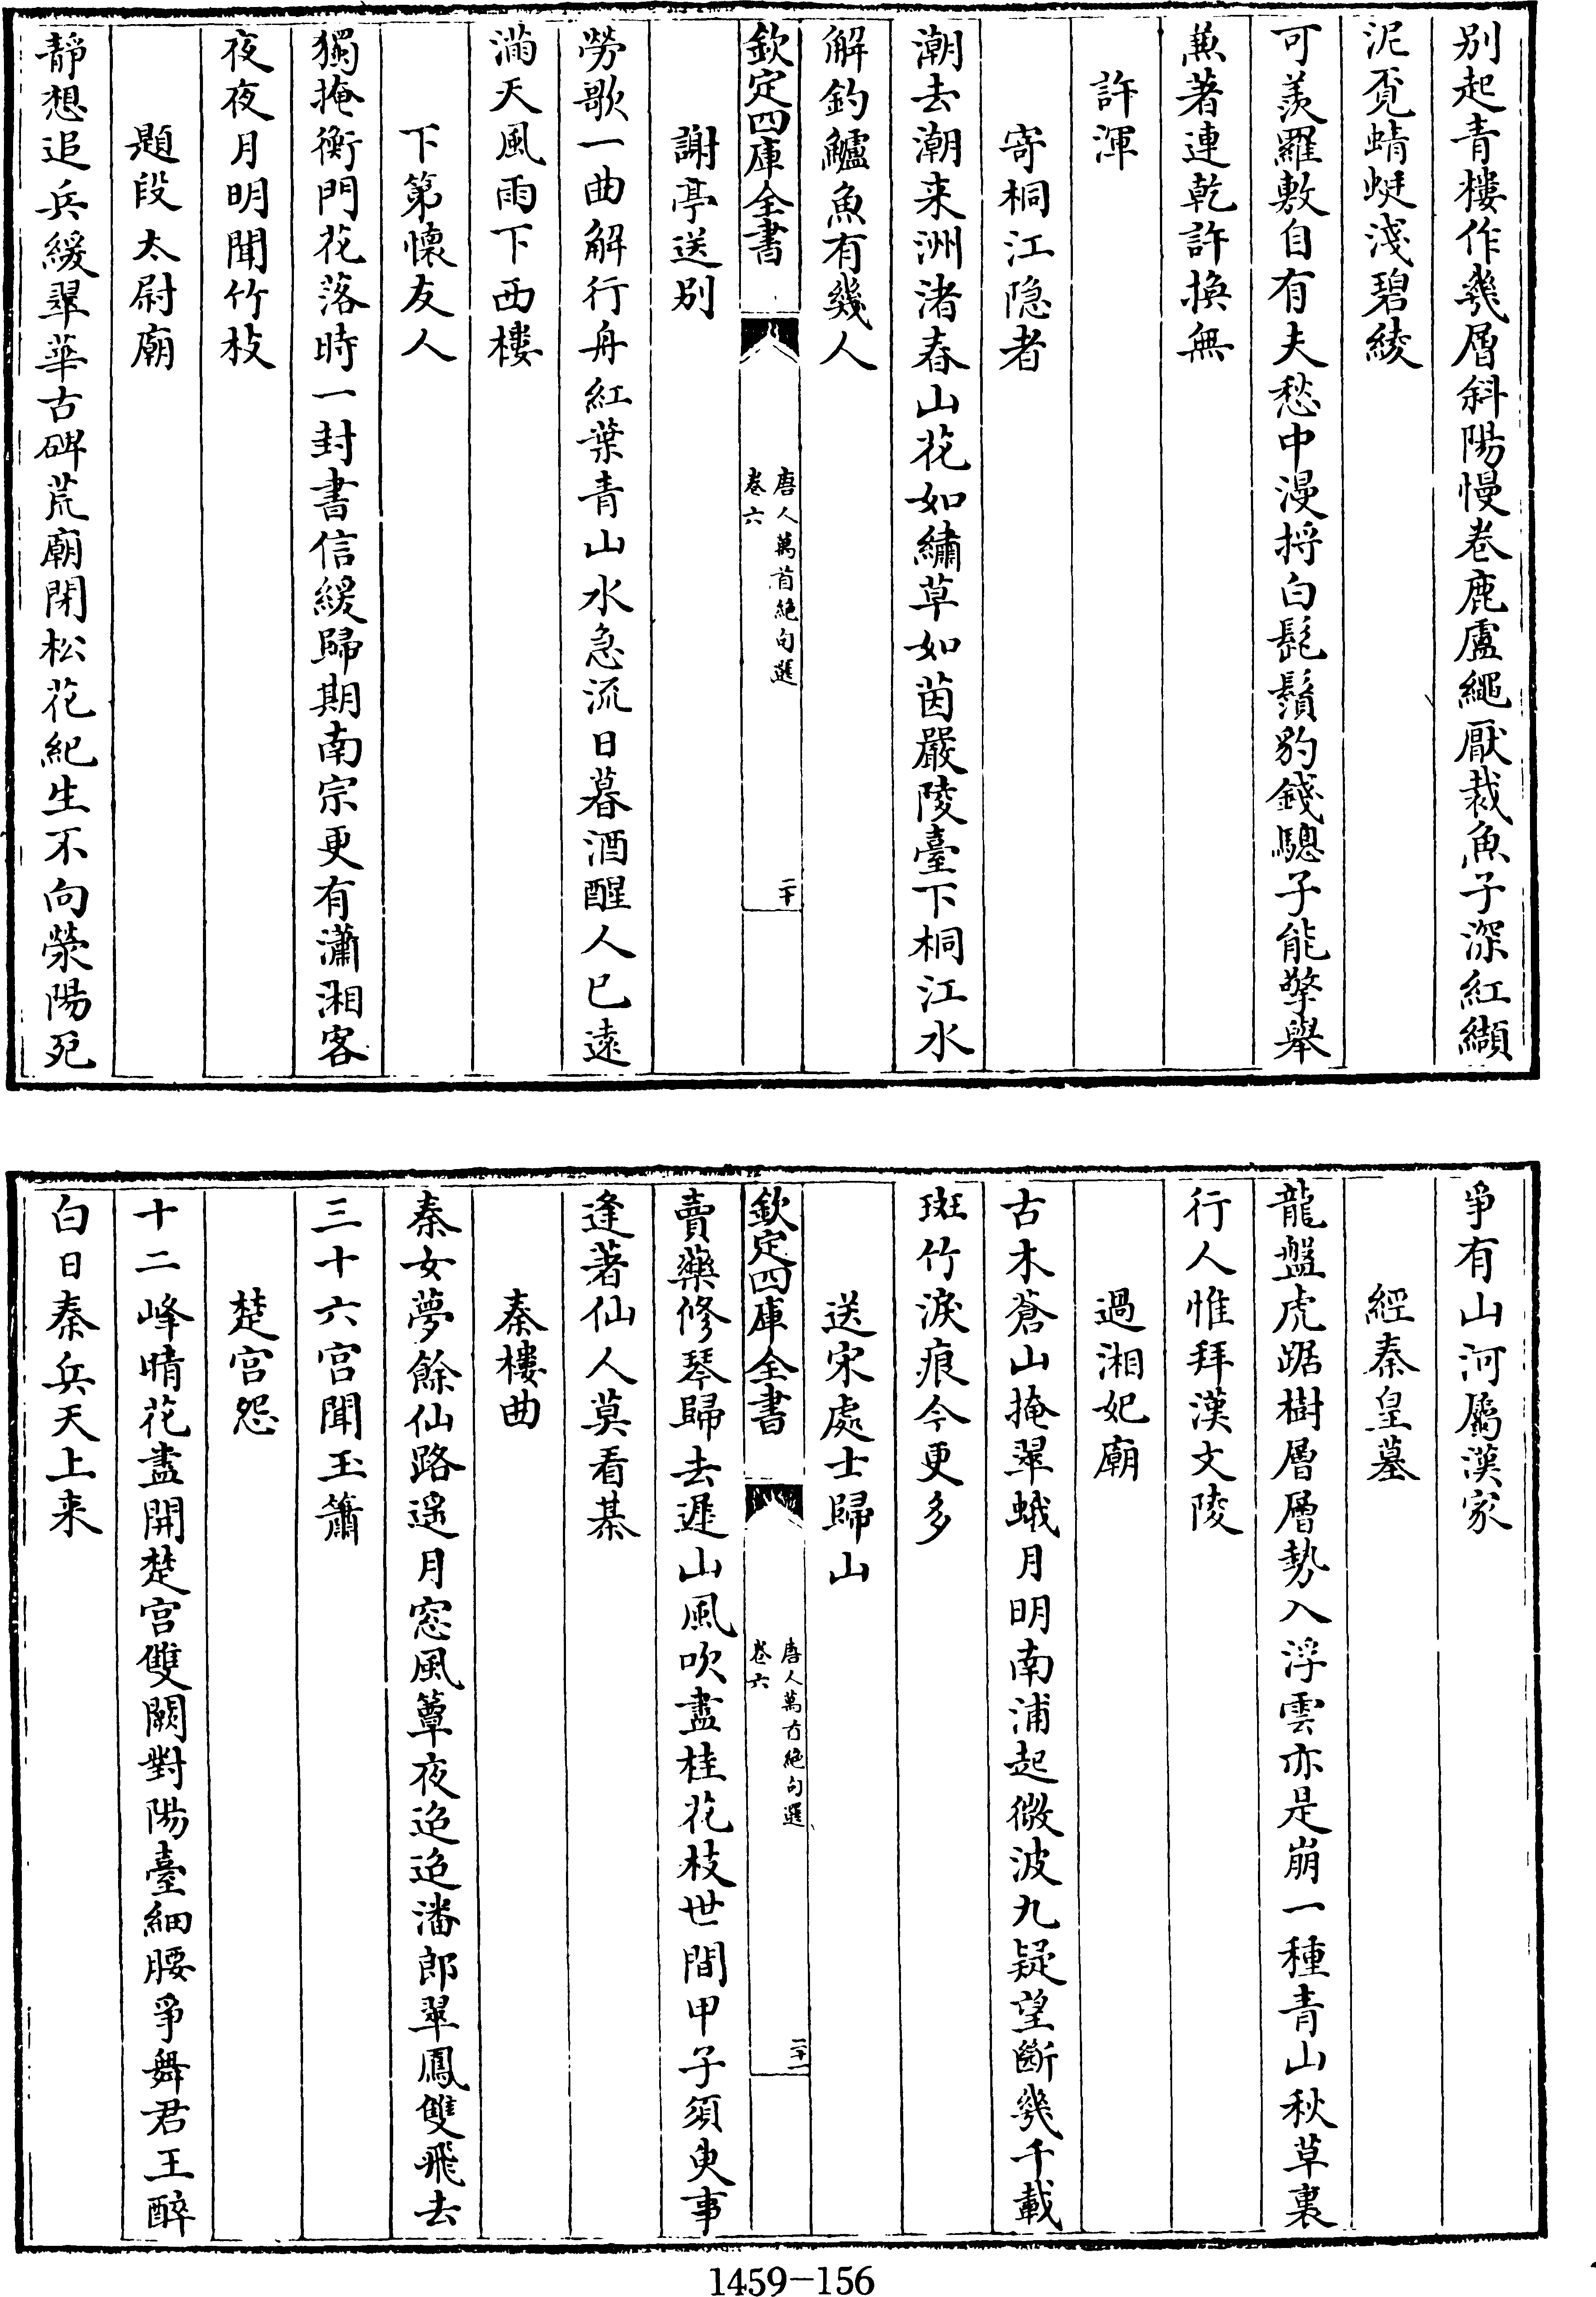 别起青樓作幾層斜陽慢卷鹿盧繩厭裁魚子深紅纈
泥覔蜻蜓淺碧綾
可羨羅敷自有夫愁中漫捋白髭鬚豹錢驄子能擎舉
兼著連乾許換無
許渾
寄桐江隐者
潮去潮来洲渚春山花如繡草如茵嚴陵臺下桐江水
解釣鱸魚有幾人
欽定四庫全書
唐人萬首絶句選
卷六
二十
謝亭送别
勞歌一曲解行舟紅葉青山水急流日暮酒醒人已遠
滿天風雨下西樓
下第懷友人
獨掩衡門花落時一封書信緩歸期南宗更有瀟湘客
夜夜月明聞竹枝
題段太尉廟
靜想追兵緩翠華古碑荒廟閉松花紀生不向滎陽死
爭有山河屬漢家
經秦皇墓
龍盤虎踞樹層層勢入浮雲亦是崩一種青山秋草裏
行人惟拜漢文陵
過湘妃廟
古木蒼山掩翠蛾月明南浦起微波九疑望斷幾千載
斑竹淚痕今更多
送宋處士歸山
欽定四庫全書
唐人萬首絶句選
卷六
二十一
賣藥修琴歸去遲山風吹盡桂花枝世間甲子須臾事
逢著仙人莫看棊
秦樓曲
秦女夢餘仙路遥月窓風簟夜迢迢潘郎翠鳳雙飛去
三十六宫聞玉簫
楚宫怨
十二峰晴花盡開楚宫雙闕對陽臺細腰爭舞君王醉
白日秦兵天上来
1459-156